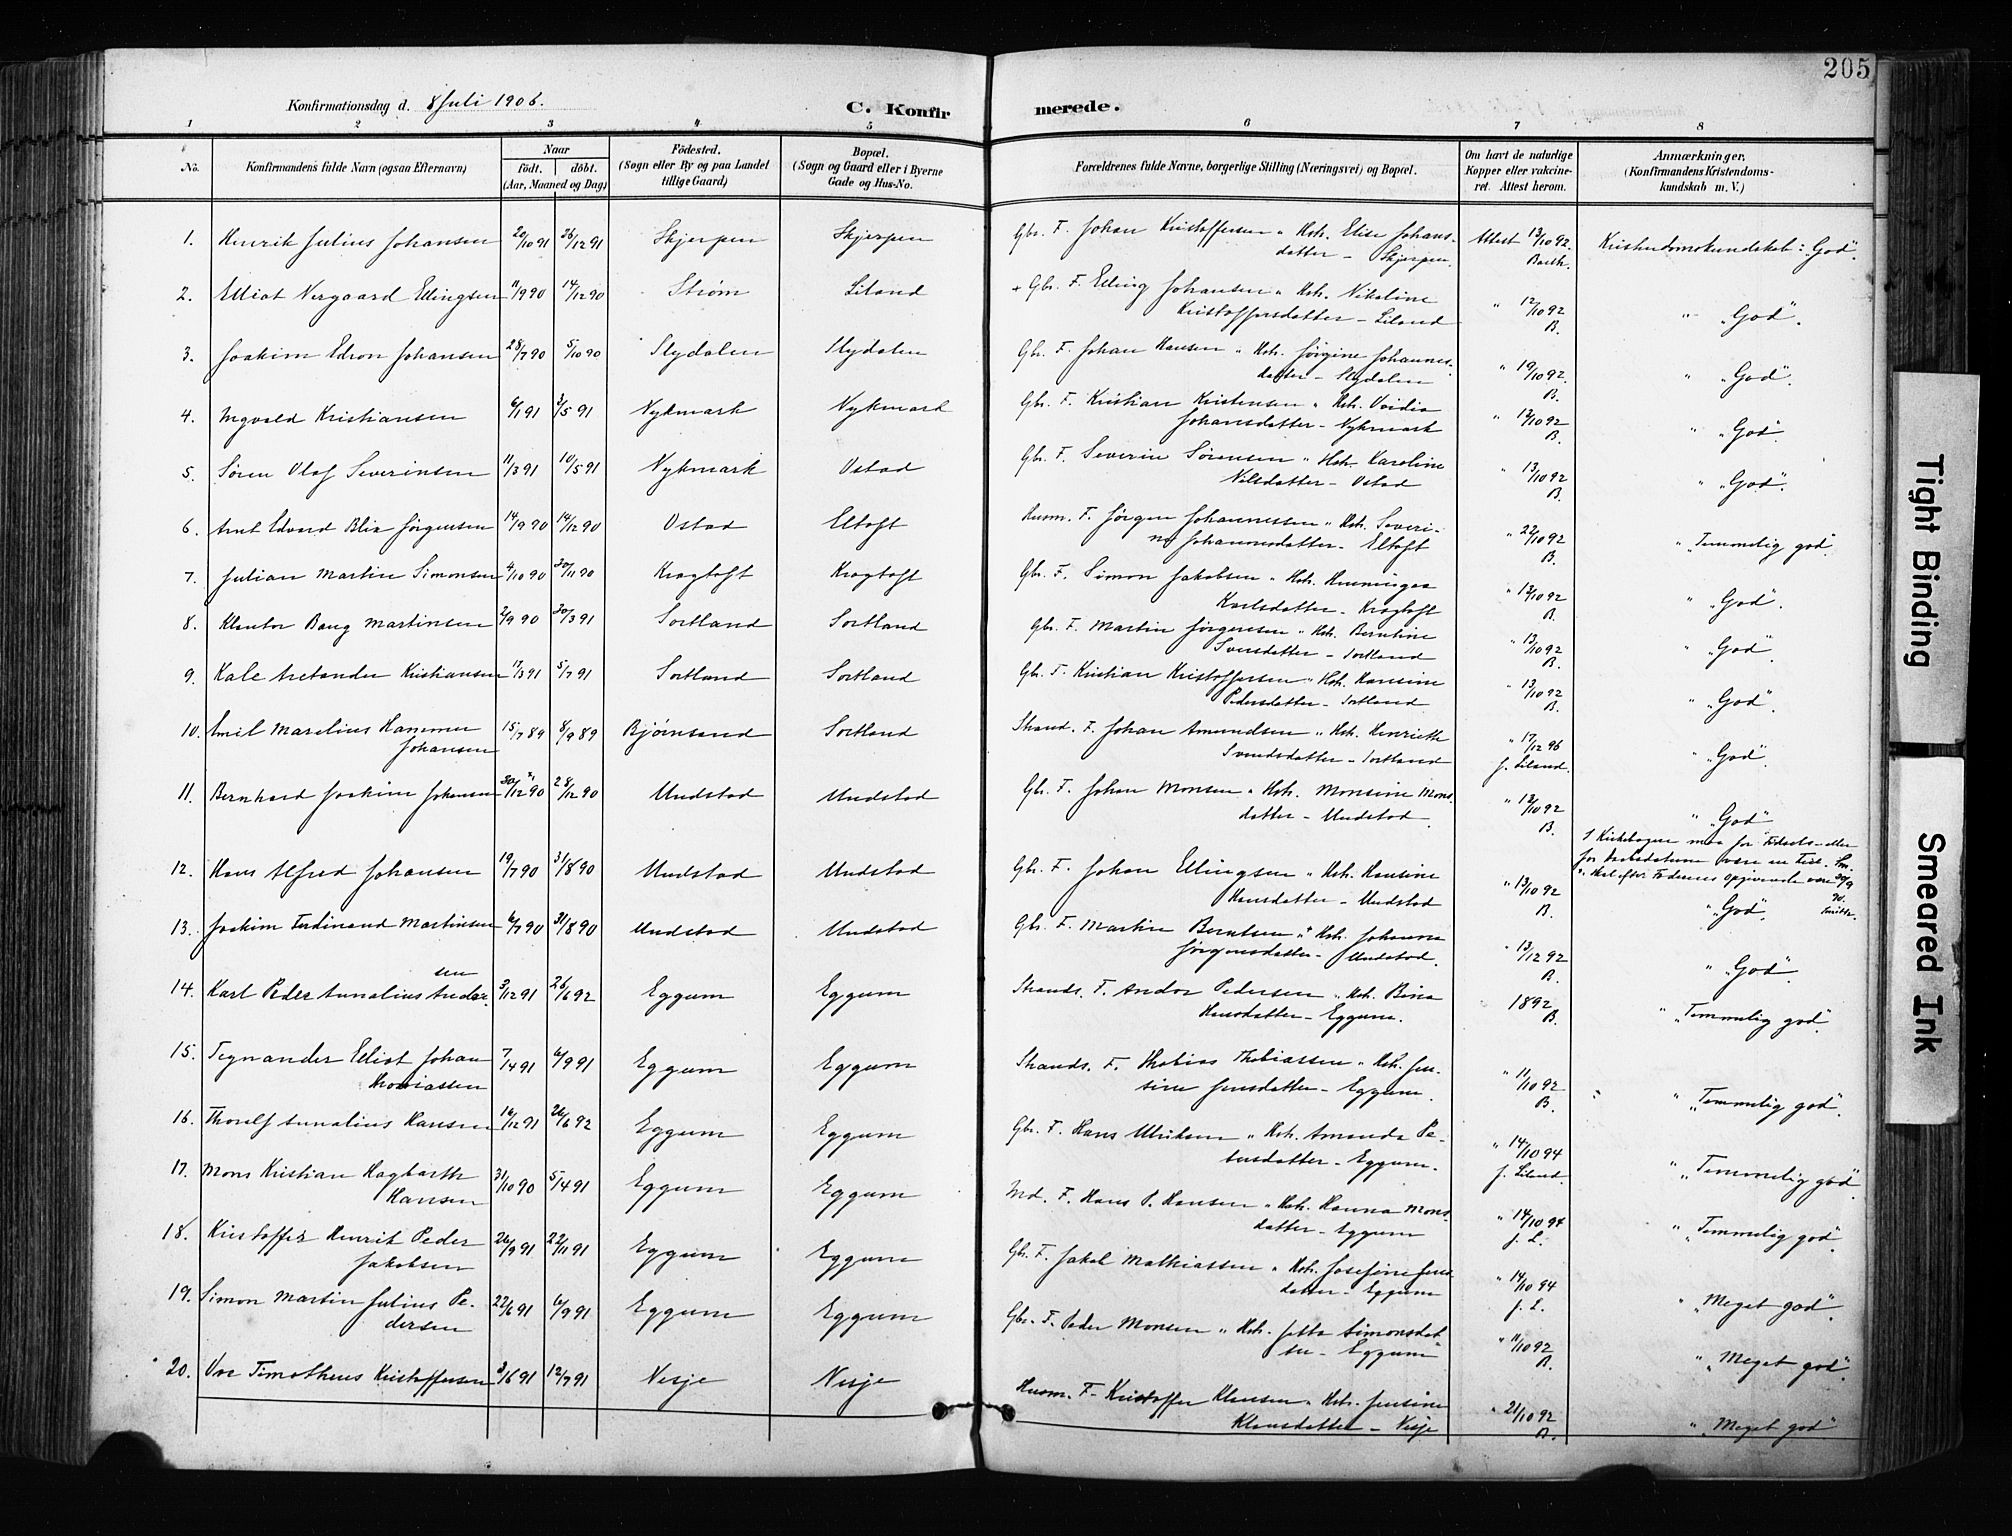 205
Konfirmationsdag d. 8 Juli 1906.
C. Konfirmerede.
1 2 3 4 5 6 7 8
No. Konfirmandens fulde Navn (ogsaa Efternavn) Naar födt. döbt. (Aar, Maaned og Dag) Födested. (Sogn eller By og paa Landet tillige Gaard) Bopæl. (Sogn og Gaard eller i Byerne Gade og Hus-No. Forældrenes fulde Navne, borgerlige Stilling (Næringsvei) og Bopæl. Om havt de naturlige Kopper eller vakcineret. Attest herom. Anmærkninger. (Konfirmandens Kristendomskundskab m. V.)
1. Henrik Julius Johansen 20/10 91 26/12 91 Skjerpen Skjerpen Gbr. F. Johan Kristoffersen " Hst. Elise Johans-
datter – Skjerpen. Attest 13/10 92. Barth. Kristendomskundskab: "God".
2. Elliot Nergaard Ellingsen 11/9 90 14/12 90 Strøm Liland + Gbr. F. Elling Johansen " Hst. Nikoline
Kristoffersdatter – Liland " 12/10 92 B. " "God".
3. Joakim Edron Johansen 28/7 90 5/10 90 Slydalen Slydalen Gbr. F. Johan Hansen " Hst. Jørgine Johannes-
datter – Slydalen " 19/10 92. B. " "God".
4. Ingvald Kristiansen 6/1 91 3/5 91 Nykmark Nykmark Gbr. F. Kristian Kristensen " Hst.
Johansdatter – Nykmark " 12/10 92 B. " "God".
5. Søren Olaf Severinsen 11/3 91 10/5 91 Nykmark Ostad Gbr. F. Severin Sørensen " Hst. Karoline
Nilsdatter – Ostad " 13/10 92 B. " "God".
6. Arnt Edvard Blix Jørgensen 14/9 90 14/12 90 Ostad Eltoft Husm. F. Jørgen Johannessen " Hst. Severi-
ne Johannesdatter – Eltoft " 22/10 92 B. " "Temmelig god".
7. Julian Martin Simonsen 4/10 90 30/11 90 Kragtoft Kragtoft Gbr. F. Simon Jakobsen " Hst. Henningea
Karlsdatter – Kragtoft " 12/10 92 B. " "God".
8. Klentor Bang Martinsen 2/9 90 30/3 91 Sortland Sortland Gbr. F. Martin Jørgensen " Hst. Berntine
Svensdatter – Sortland " 13/10 92 B. " "God".
9. Kale Aretander Kristiansen 17/3 91 5/7 91 Sortland Sortland Gbr. F. Kristian Kristoffersen " Hst. Hansine
Pedersdatter – Sortland " 13/10 92 B. " "God".
10. Emil Marelius Hammer
Johansen 15/7 89 8/9 89 Bjørnsand Sortland Strand. F. Johan Amundsen " Hst. Henriette
Svendsdatter – Sortland " 17/12 96 J. Liland. " "God".
11. Bernhard Joakim Johansen 30/12 90 28/12 90 Undstad Undstad Gbr. F. Johan Monsen " Hst. Monsine Mons-
datter – Undstad. " 12/10 92 B. " "God"
I Kirkebogen maa for Fødsels- eller
for Daabsdatum være en Feil.
skal efter Faderens Opgivende være 30/9 90. Smitte.
12. Hans Alfred Johansen 19/7 90 31/8 90 Undstad Undstad Gbr. F. Johan Ellingsen " Hst. Hansine
Hansdatter – Undstad " 13/10 92 B. " "God".
13. Joakim Ferdinand Martinsen 6/7 90 31/8 90 Undstad Undstad Gbr. F. Martin Berntsen " + Hst. Johanna
Jørgensdatter – Undstad. " 13/12 92 B. " "God".
14. Karl Peder Annalius Andor-
sen 3/12 91 26/6 92 Eggum Eggum Strands. F. Andor Pedersen " Hst. Bina
Hansdatter – Eggum. 1892 B. " "Temmelig god".
15. Tegnander Elliot Johan
Thobiassen 7/4 91 6/9 91 Eggum Eggum Strands. F. Thobias Thobiassen " Hst. Jen-
sine Jensdatter – Eggum. " 11/10 92 B. " "Temmelig god".
16. Thorolf Annalius Hansen 16/12 91 26/6 92 Eggum Eggum Gbr. F. Hans Ulriksen " Hst. Amanda Pe-
tersdatter – Eggum. " 14/10 94 J. Liland. " "Temmelig god".
17. Mons Kristian Hagbarth
Hansen 31/10 90 5/4 91 Eggum Eggum Md. F. Hans P. Hansen " Hst. Hanna Mons-
datter – Eggum " 14/10 94 J. L. " "Temmelig god".
18. Kristoffer Henrik Peder
Jakobsen 26/9 91 22/11 91 Eggum Eggum Gbr. F. Jakob Mathiassen " Hst. Josefine Jens-
datter – Eggum " 14/10 94 J. L. " "Meget god".
19. Simon Martin Julius Pe-
dersen 22/6 91 6/9 91 Eggum Eggum Gbr. F. Peder Monsen " Hst. Jetta Simonsdat-
ter – Eggum " 11/10 92 B. " "Meget god".
20. Ove Timotheus Kristoffersen 3/6 91 12/7 91 Nesje Nesje Husm. F. Kristoffer Klausen " Hst. Jensine
Klausdatter – Nesje " 21/10 92 B. " "Meget god"
Tight Binding
Smeared Ink